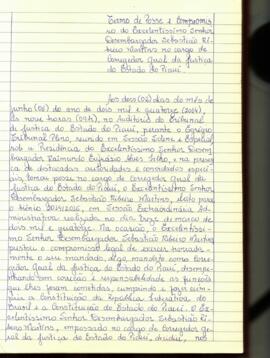 Termo de Posse e Compromis-
so do Excelentíssimo Senhor
Desembargador Sebastião Ri-
beiro Martins no cargo de
Corregedor Geral da Justiça
do Estado do Piauí.
Aos dois (02) dias do mês de
junho (06) do ano de dois mil e quatorze (2014),
às nove horas (09h), no Auditório do Tribunal
de Justiça do Estado do Piauí, perante o Egrégio
Tribunal Pleno, reunido em Sessão Solene e Especial,
sob a Presidência do Excelentíssimo Senhor Desem-
bargador Raimundo Eufrásio Alves Filho, e na presen-
ça de destacadas autoridades e convidados especi-
ais, tomou posse no cargo de Corregedor Geral da
Justiça do Estado do Piauí, o Excelentíssimo Senhor
Desembargador Sebastião Ribeiro Martins, eleito para
o biênio 2014/2016, em Sessão Extraordinária Ad-
ministrativa realizada no dia de março de
dois mil e quatorze. Na ocasião, o Excelentíssi-
mo Senhor Desembargador Sebastião Ribeiro Martins
prestou o compromisso legal de exercer honrada-
mente o seu mandato, digo, mandato como Corre-
gedor Geral da Justiça do Estado do Piauí, desempe-
nhando com correção e responsabilidade as funções
que lhes foram cometidas, cumprindo e fazer cum-
prir a Constituição da República Federativa do
Brasil e a Constituição do Estado do Piauí. O Ex-
celentíssimo Senhor Desembargador Sebastião Ri-
beiro Martins, empossado no cargo de Corregedor Ge-
ral da Justiça do Estado do Piauí,